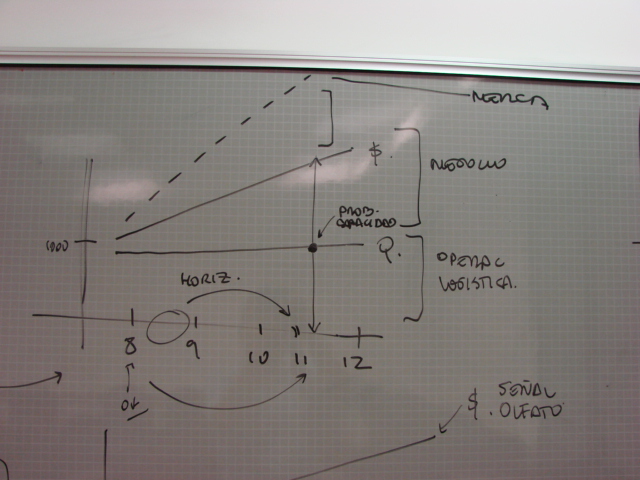 $.
NEGOCIO
PROB.
CAPACIDAD
1000
Q.
OPERAC
LOGISTICA.
HORIZ.
8
9
10
11
12
$
SEÑAL
OLFATO